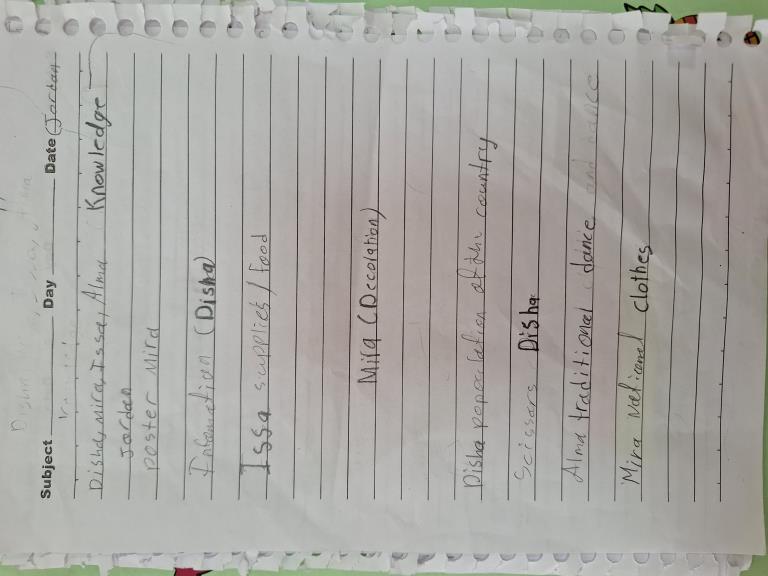 Subject Day Date (Jordan
Disha, mira, Issa, Alma Knowledge
Jordan
poster Mira
Infomation (Disha)
Issa supplies / food
Mira (Decolation)
Disha popoolation of the country
Scissors Disha
Alma traditional dance and dance
Mira National clothes